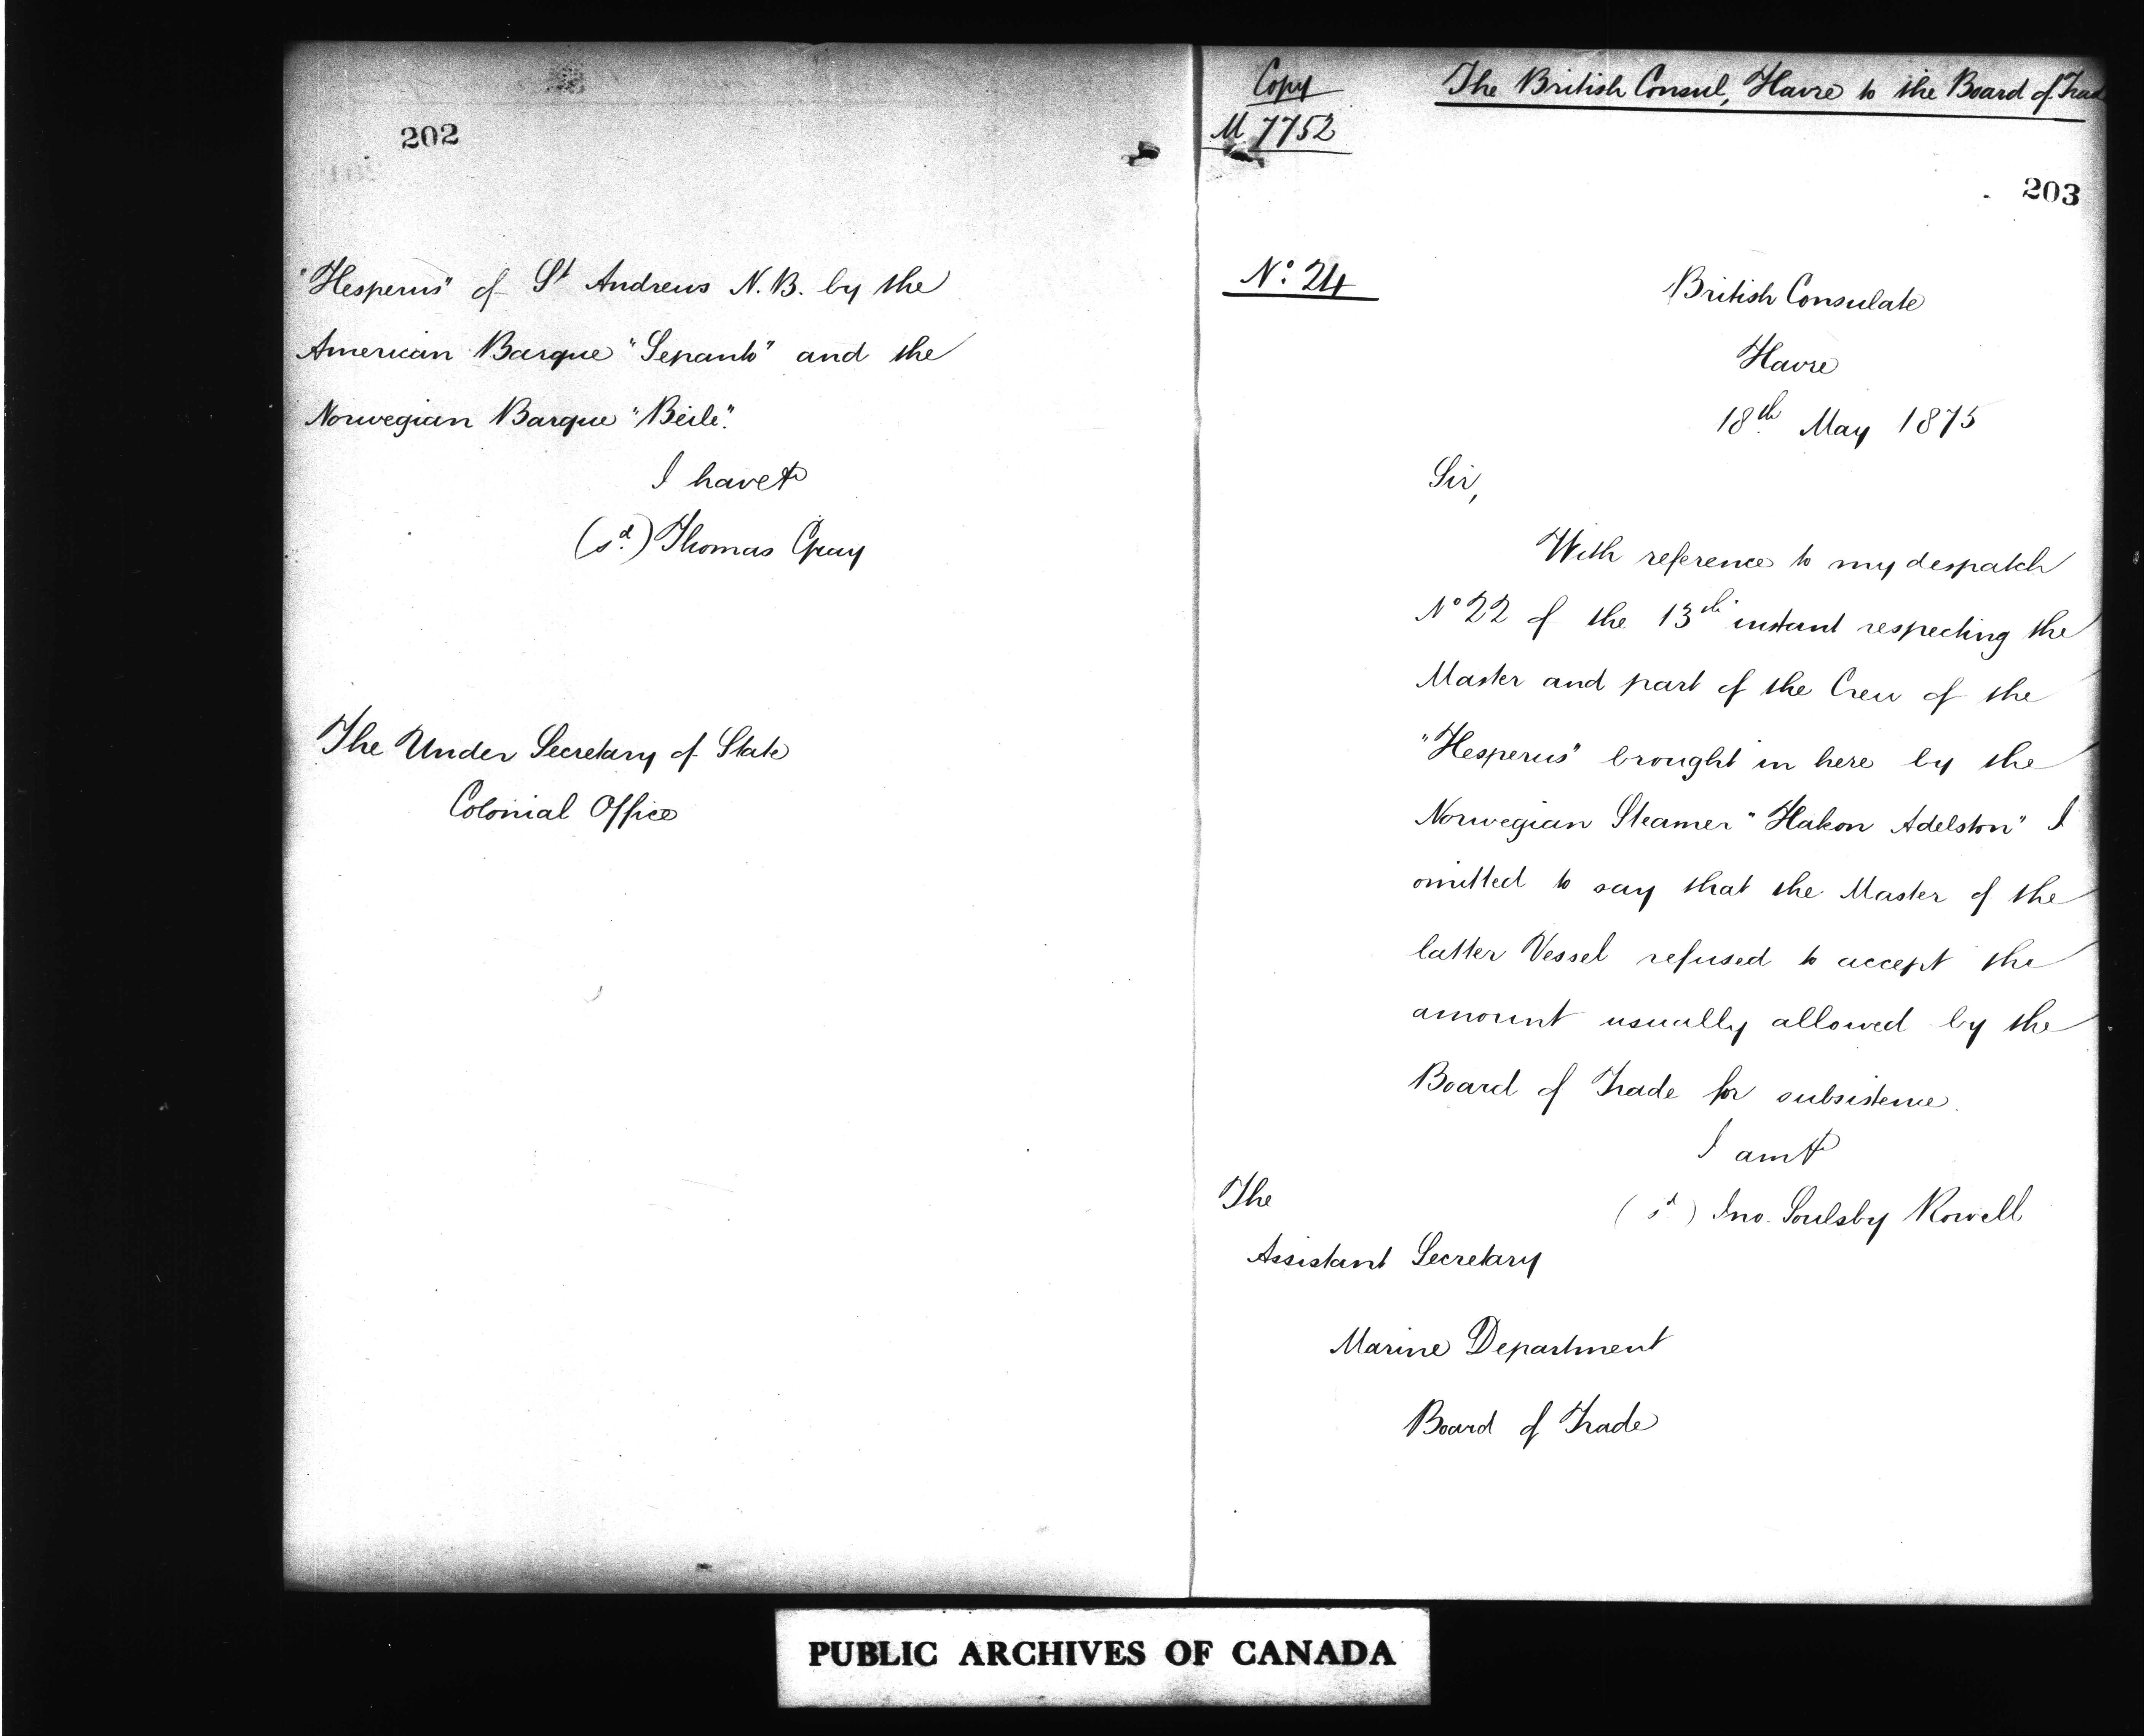 202
"Hesperus" of St Andrews N.B. by the
American Barque "Lepanto" and the
Norwegian Barque "Beile".
I have &c
(sd.) Thomas Gray
The Under Secretary of State
Colonial Office
Copy
M 7752
The British Consul, Havre to the Board of Trade
203
No. 24
British Consulate
Havre
18th May 1875
Sir,
With reference to my despatch
No 22 of the 13th instant respecting the
Master and part of the Crew of the
"Hesperus" brought in here by the
Norwegian Steamer "Hakon Adelston" I
omitted to say that the Master of the
latter Vessel refused to accept the
amount usually allowed by the
Board of Trade for subsistence.
I am &c
(sd) Jno. Soulsby Rowell
The
Assistant Secretary
Marine Department
Board of Trade
PUBLIC ARCHIVES OF CANADA